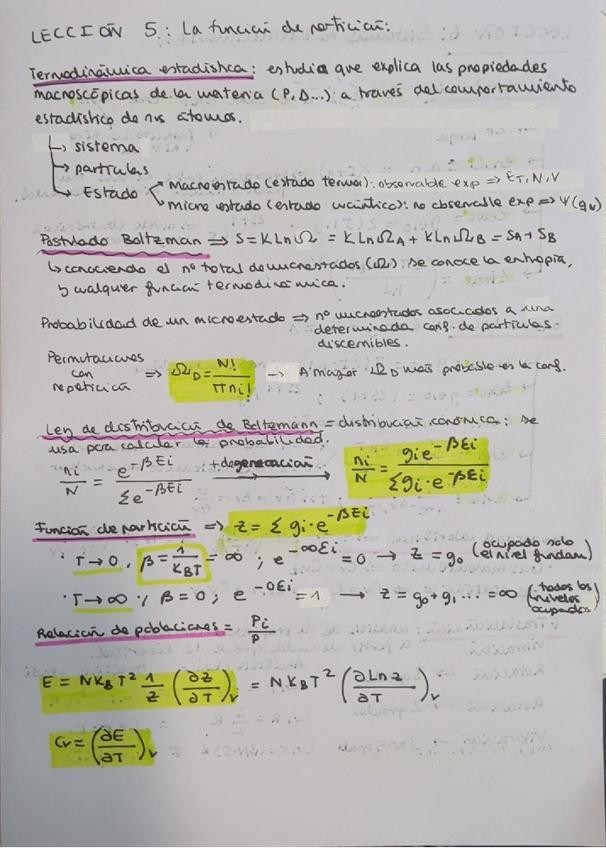 LECCIÓN 5: La función de partición:
Termodinámica estadística: estudia que explica las propiedades
macroscópicas de la materia (P, D...) a través del comportamiento
estadístico de sus átomos.
↳ sistema
↳ partículas
↳ Estado
macroestado (estado termo): observable exp ⇒ ET, N, V
micro estado (estado cuántico): no observable exp ⇒ Ψ(qN)
Postulado Boltzman ⇒ S = K Ln Ω = K Ln ΩA + K Ln ΩB = SA + SB
↳ conociendo el nº total de microestados (Ω): se conoce la entropía,
y cualquier función termodinámica.
Probabilidad de un microestado ⇒ nº microestados asociados a una
determinada conf. de partículas
discernibles.
Permutaciones
con
repetición
⇒ ΩD = N! / π ni! → A mayor ΩD más probable es la conf.
Ley de distribución de Boltzmann = distribución canónica: se
usa para calcular la probabilidad.
ni/N = e^-βEi / Σe^-βEi + degeneración → ni/N = gi e^-βEi / Σgi·e^-βEi
Función de partición ⇒ z = Σ gi·e^-βEi
· T→0, β = 1/KBT = ∞; e^-∞Ei = 0 → z = g0 (ocupado solo el nivel fundam)
· T→∞, β = 0; e^-0Ei = 1 → z = g0 + g1... = ∞ (todos los niveles ocupados)
Relación de poblaciones = Pi/P
E = N KB T² 1/z (∂z/∂T)v = N KB T² (∂Ln z/∂T)v
Cv = (∂E/∂T)v